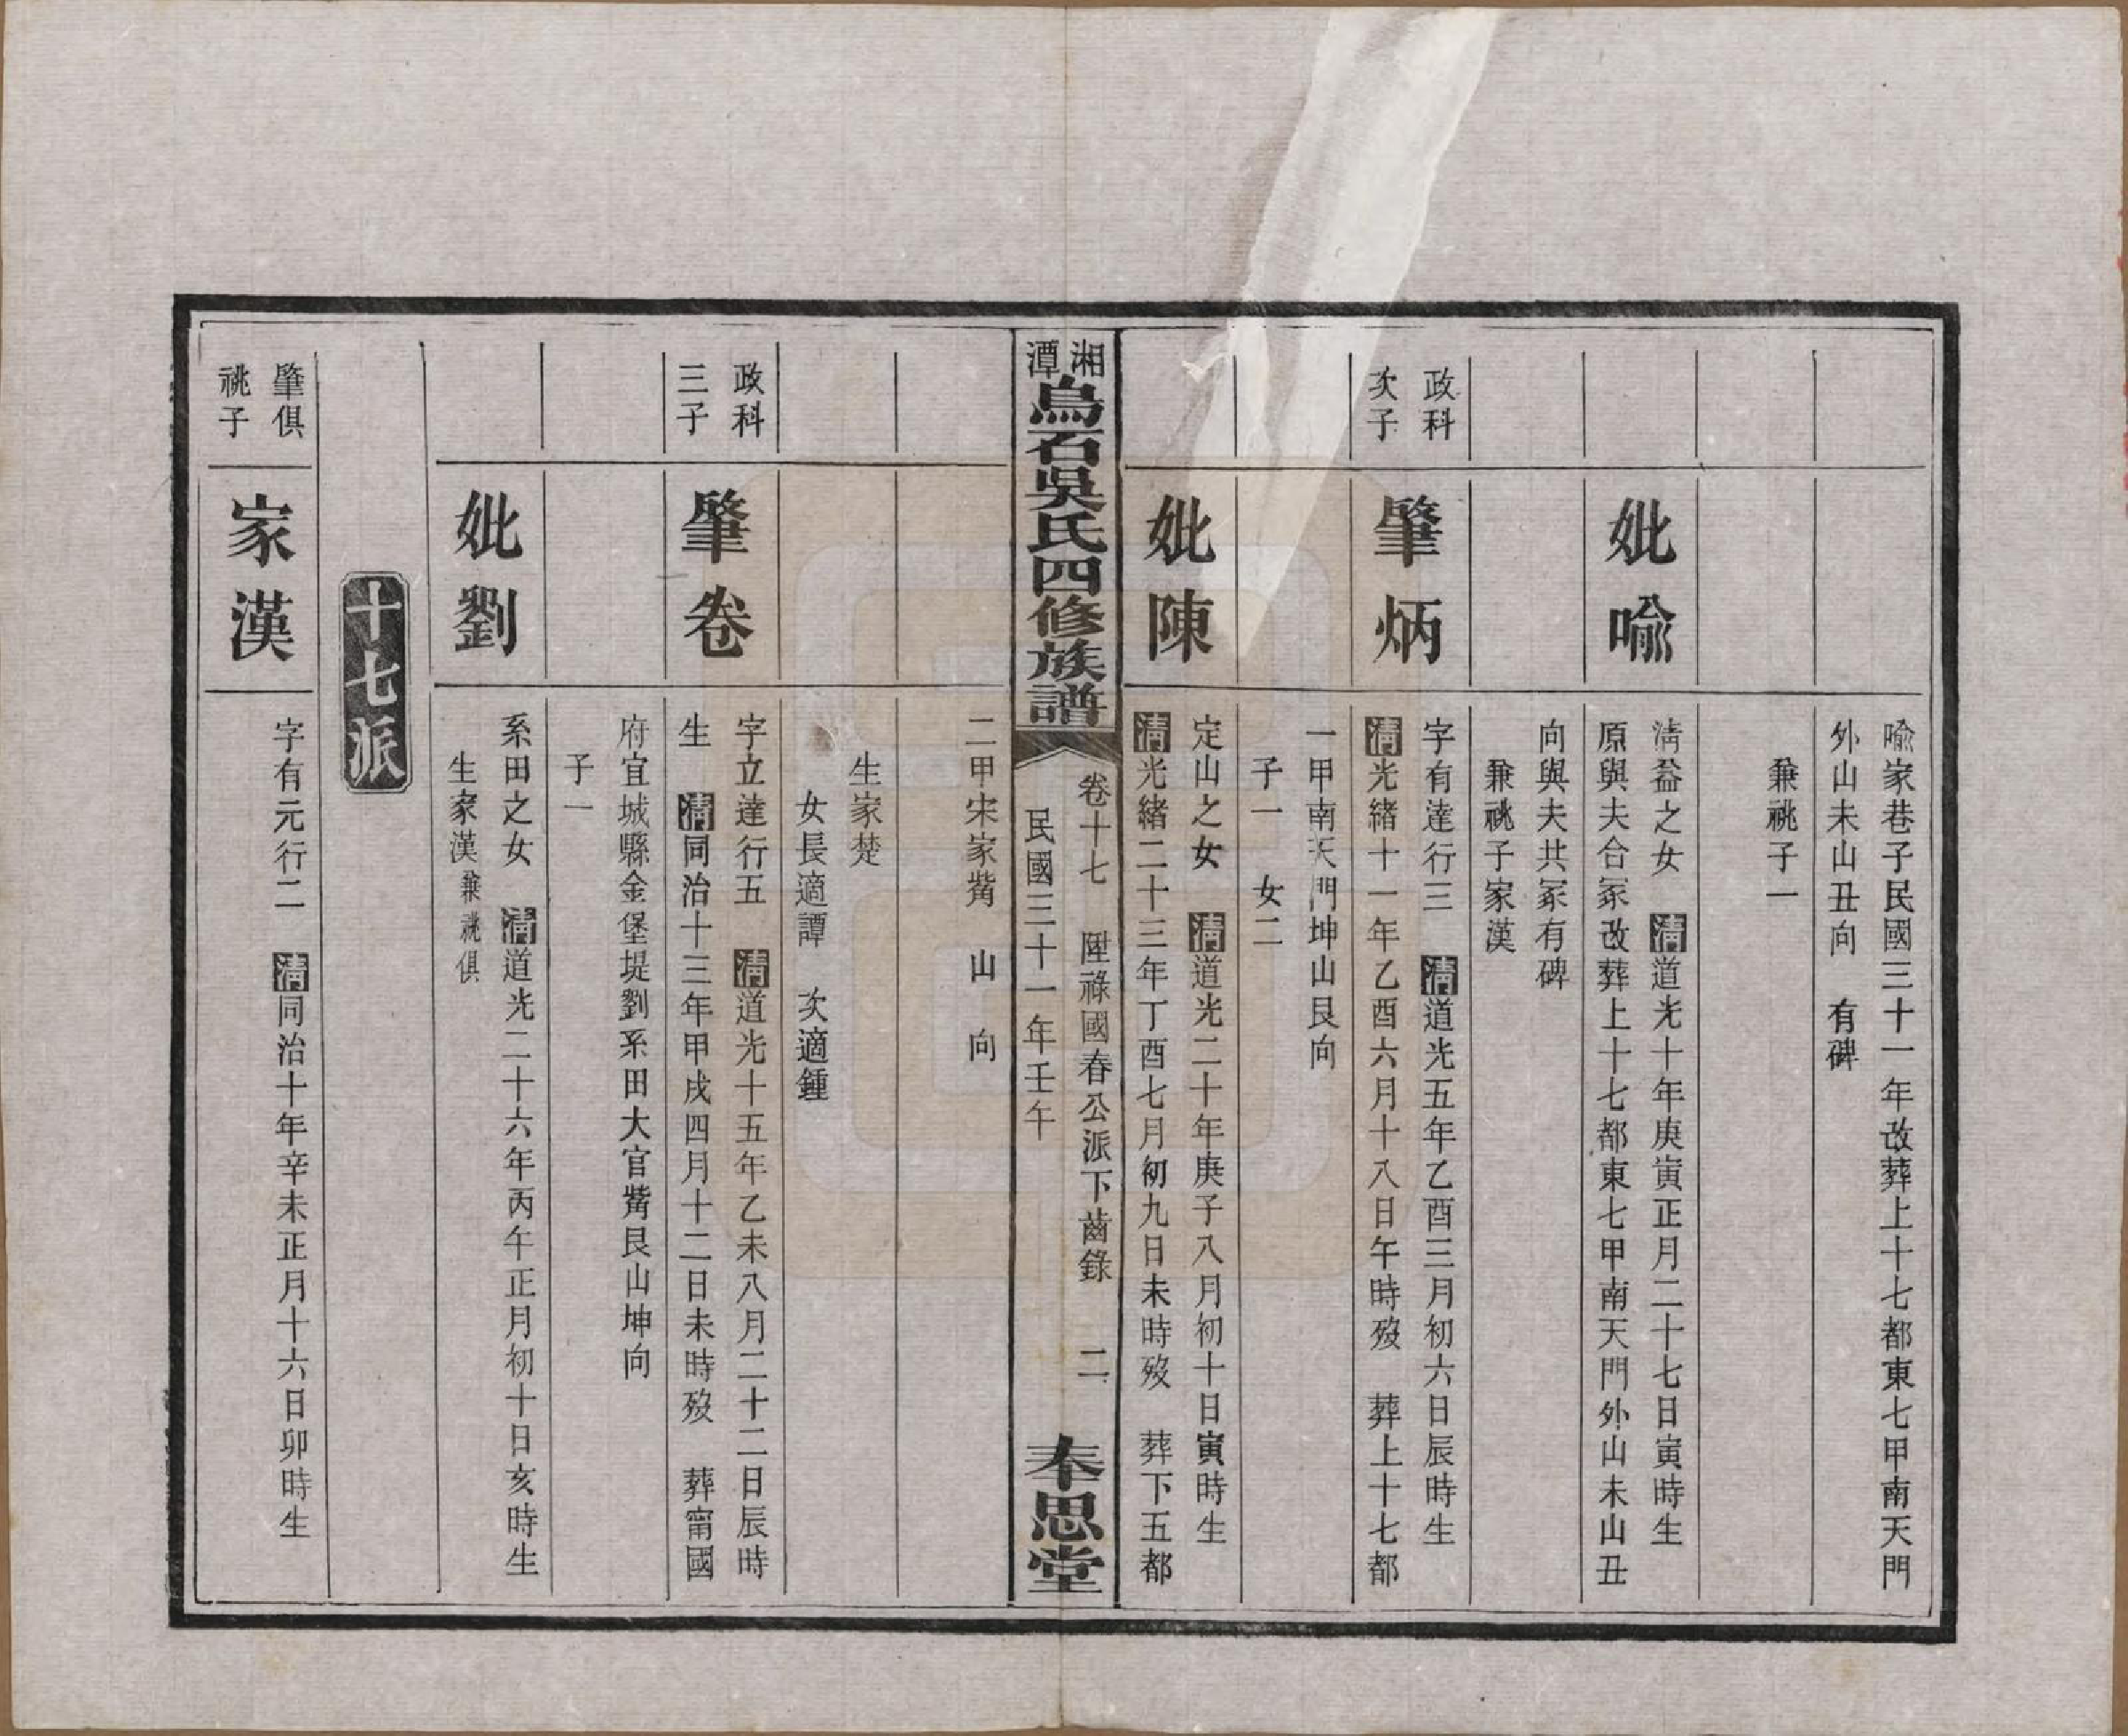 喩家巷子民國三十一年改葬上十七都東七甲南天門
外山未山丑向　有碑
兼祧子一
妣喩
淸益之女　淸道光十年庚寅正月二十七日寅時生
原與夫合冢改葬上十七都東七甲南天門外山未山丑
向與夫共冢有碑
兼祧子家漢
政科
次子
肇炳
字有達行三　淸道光五年乙酉三月初六日辰時生
淸光緒十一年乙酉六月十八日午時歿　葬上十七都
一甲南天門坤山艮向
子一　女二
妣陳
定山之女　淸道光二十年庚子八月初十日寅時生
淸光緒二十三年丁酉七月初九日未時歿　葬下五都
湘潭烏石吳氏四修族譜
卷十七　陞祿國春公派下齒錄　二
民國三十一年壬午
奉思堂
二甲宋家觜　山　向
生家楚
女長適譚　次適鍾
政科
三子
肇卷
字立達行五　淸道光十五年乙未八月二十二日辰時
生　淸同治十三年甲戌四月十二日未時歿　葬甯國
府宜城縣金堡堤劉系田大官觜艮山坤向
子一
妣劉
系田之女　淸道光二十六年丙午正月初十日亥時生
生家漢兼祧俱
十七派
肇俱
祧子
家漢
字有元行二　淸同治十年辛未正月十六日卯時生